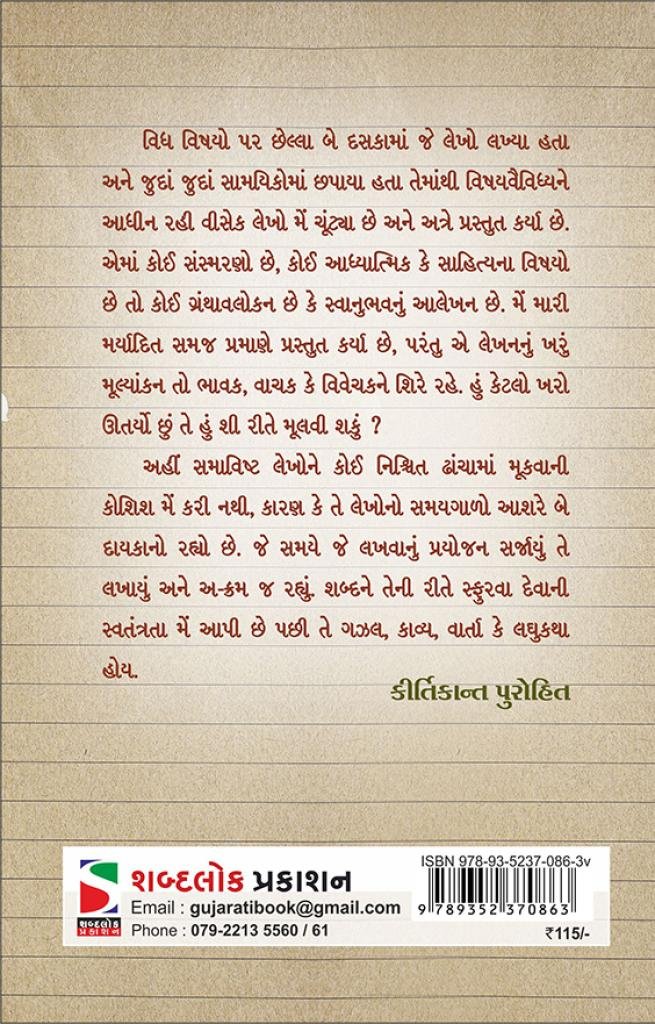 વિધ વિષયો પર છેલ્લા બે દસકામાં જે લેખો લખ્યા હતા
અને જુદાં જુદાં સામયિકોમાં છપાયા હતા તેમાંથી વિષયવૈવિધ્યને
આધીન રહી વીસેક લેખો મેં ચૂંટ્યા છે અને અત્રે પ્રસ્તુત કર્યા છે.
એમાં કોઈ સંસ્મરણો છે, કોઈ આધ્યાત્મિક કે સાહિત્યના વિષયો
છે તો કોઈ ગ્રંથાવલોકન છે કે સ્વાનુભવનું આલેખન છે. મેં મારી
મર્યાદિત સમજ પ્રમાણે પ્રસ્તુત કર્યા છે, પરંતુ એ લેખનનું ખરું
મૂલ્યાંકન તો ભાવક, વાચક કે વિવેચકને શિરે રહે. હું કેટલો ખરો
ઊતર્યો છું તે હું શી રીતે મૂલવી શકું ?
અહીં સમાવિષ્ટ લેખોને કોઈ નિશ્ચિત ઢાંચામાં મૂકવાની
કોશિશ મેં કરી નથી, કારણ કે તે લેખોનો સમયગાળો આશરે બે
દાયકાનો રહ્યો છે. જે સમયે જે લખવાનું પ્રયોજન સર્જાયું તે
લખાયું અને અ-ક્રમ જ રહ્યું. શબ્દને તેની રીતે સ્ફુરવા દેવાની
સ્વતંત્રતા મેં આપી છે પછી તે ગઝલ, કાવ્ય, વાર્તા કે લઘુકથા
હોય.
કીર્તિકાન્ત પુરોહિત
શબ્દલોક પ્રકાશન
Email : gujaratibook@gmail.com
Phone : 079-2213 5560 / 61
શબ્દલોક
પ્રકાશન
ISBN 978-93-5237-086-3v
9 789352 370863
₹115/-